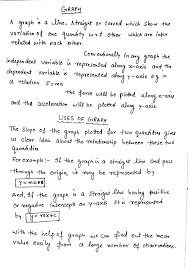 GRAPH
A graph is a line, straight or curved which show the
variation of one quantity w.r.t other which are inter
related with each other.
Conventionally in any graph the
independent variable is represented along x-axis and the
dependent variable is represented along y-axis e.g in
a relation F=ma
the force will be plotted along x-axis
and the acceleration will be plotted along y-axis
USES OF GRAPH
The slope of the graph plotted for two quantities gives
us clear idea about the relationship between these
two quantities
For example:- If the graph is a straight line and pass
through the origin, it may be represented by
y=mx
And, If the graph is a straight line having positive
or negative intercept on y-axis it is represented
by y=mx+c
With the help of graph we can find out the mean
value easily from a large number of observations.